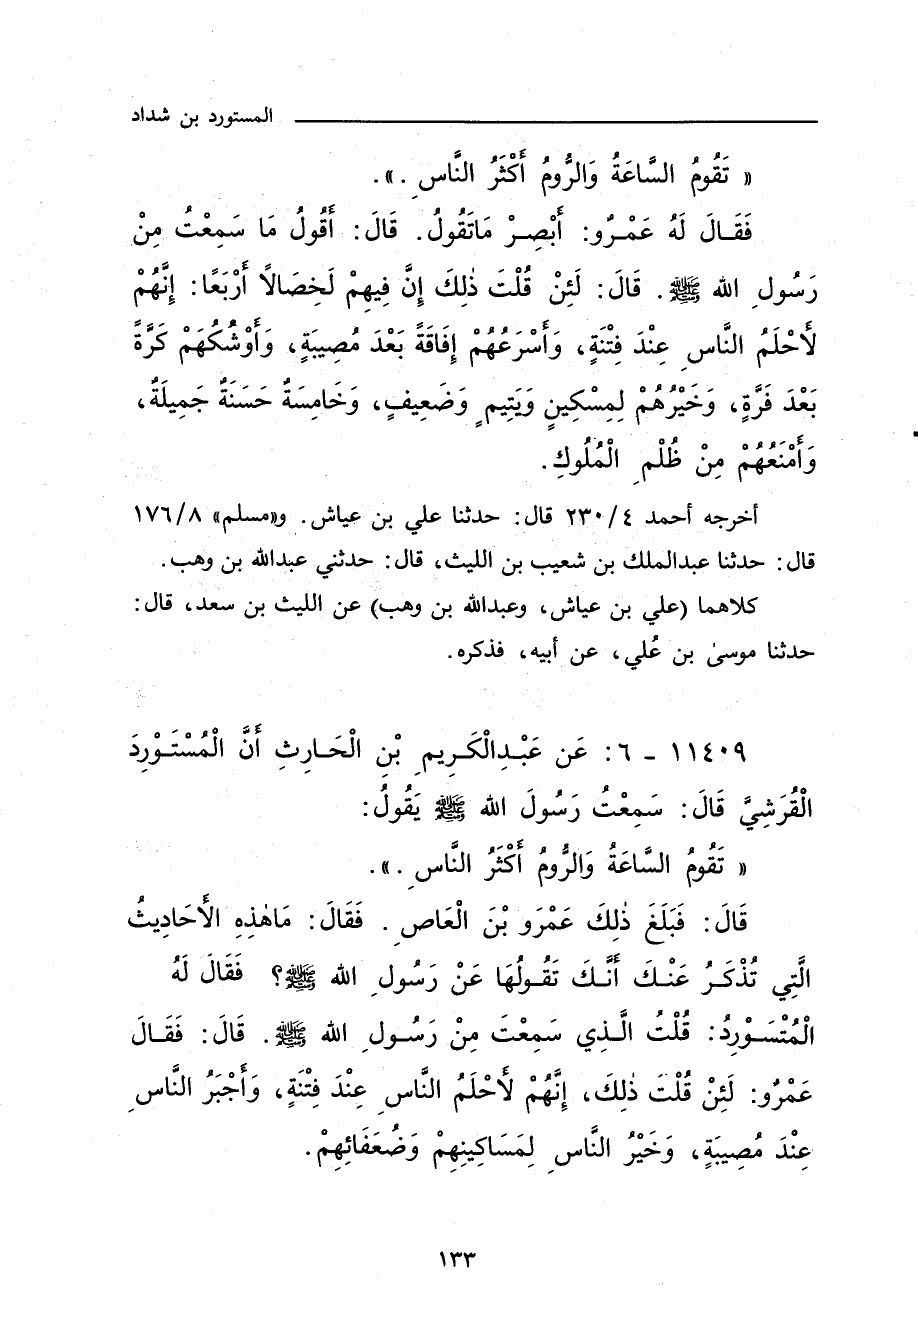 المستورد بن شداد
« تَقُومُ السَّاعَةُ وَالرُّومُ أَكْثَرُ النَّاسِ . ».
فَقَـالَ لَهُ عَمْـرُو: أَبْصِـرْ مَاتَقُولُ. قَالَ: أَقُولُ مَا سَمِعْتُ مِنْ
رَسُولِ الله ﷺ. قَالَ: لَئِنْ قُلْتَ ذٰلِكَ إِنَّ فِيهِمْ لَخِصَالاً أَرْبَعًا: إِنَّهُمْ
لَأَحْلَمُ النَّاسِ عِنْدَ فِتْنَةٍ، وَأَسْرَعُهُمْ إِفَاقَةً بَعْدَ مُصِيبَةٍ، وَأَوْشَكُهُمْ كَرَّةً
بَعْدَ فَرَّةٍ، وَخَيْرُهُمْ لِمِسْكِينٍ وَيَتِيمٍ وَضَعِيفٍ، وَخَامِسَةٌ حَسَنَةٌ جَمِيلَةٌ،
وَأَمْنَعُهُمْ مِنْ ظُلْمِ الْمُلُوكِ.
أخرجه أحمد ٢٣٠/٤ قال: حدثنا علي بن عياش. و«مسلم» ١٧٦/٨
قال: حدثنا عبدالملك بن شعيب بن الليث، قال: حدثني عبدالله بن وهب.
كلاهما (علي بن عياش، وعبدالله بن وهب) عن الليث بن سعد، قال:
حدثنا موسىٰ بن عُلي، عن أبيه، فذكره.
١١٤٠٩ - ٦: عَن عَبْـدِالْكَـرِيمِ بْنِ الْحَـارِثِ أَنَّ الْمُسْتَـوْرِدَ
الْقُرَشِيَّ قَالَ: سَمِعْتُ رَسُولَ الله ﷺ يَقُولُ:
« تَقُومُ السَّاعَةُ وَالرُّومُ أَكْثَرُ النَّاسِ . ».
قَالَ: فَبَلَغَ ذٰلِكَ عَمْرَو بْنَ الْعَاصِ . فَقَالَ: مَاهٰذِهِ الأَحَادِيثُ
الَّتِي تُذْكَـرُ عَنْـكَ أَنَّـكَ تَقُـولُهَا عَنْ رَسُولِ الله ﷺ؟ فَقَالَ لَهُ
الْمُتْسَـوْرِدُ: قُلْتُ الَّـذِي سَمِعْتَ مِنْ رَسُـولِ الله ﷺ. قَالَ: فَقَـالَ
عَمْرُو: لَئِنْ قُلْتَ ذٰلِكَ، إِنَّهُمْ لَأَحْلَمُ النَّاسِ عِنْدَ فِتْنَةٍ، وَأَجْبَرُ النَّاسِ
عِنْدَ مُصِيبَةٍ، وَخَيْرُ النَّاسِ لِمَسَاكِينِهِمْ وَضُعَفَائِهِمْ.
١٣٣